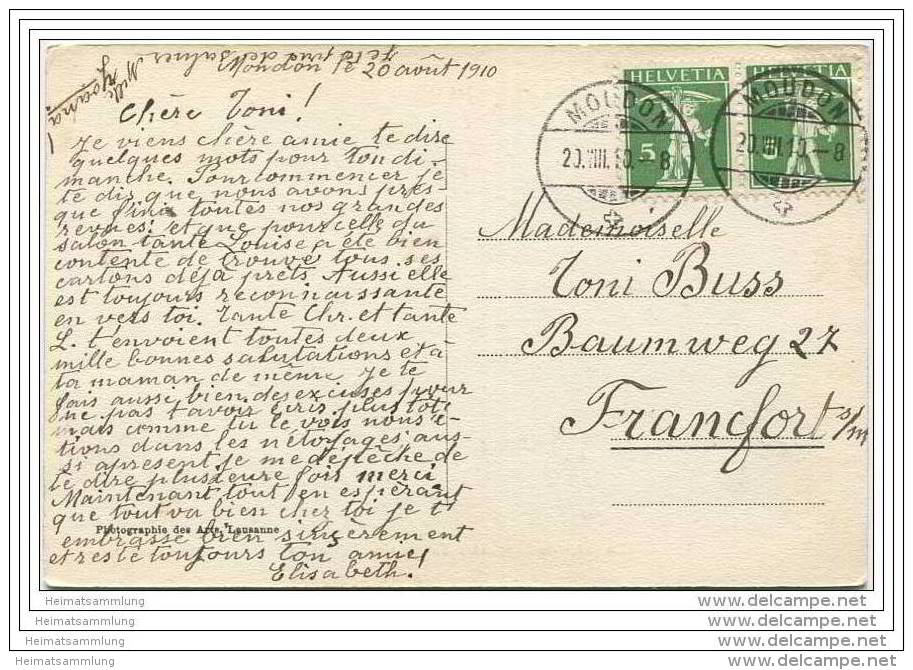 Moudon le 20 août 1910
Mille
Chère Toni !
Je viens chère amie te dire
quelques mots pour ton di-
manche. Pour commencer je
te dis que nous avons pres-
que fini toutes nos grandes
revues. et que pour celle du
salon tante Louise a été bien
contente de trouvé tous ses
cartons déjà prets. Aussi elle
est toujours reconnaissante
en vers toi. Tante Chr. et tante
L. t'envoient toutes deux
mille bonnes salutations et à
ta maman de même. Je te
fais aussi bien des excuses pour
ne pas t'avoir écris plus tôt
mais comme tu le vois nous é-
tions dans les netoyages; aus-
si apresent je me dépèche de
te dire plusieure fois merci
Maintenant tout en espérant
que tout va bien cher toi je t'
embrasse bien sinçèrement
et reste toujours ton amie!
Elisabeth!
Photographie des Arts, Lausanne
HELVETIA
HELVETIA
5
MOUDON
20.VIII.10.—8
MOUDON
20.VIII.10.—8
Mademoiselle
Toni Buss
Baumweg 27
Francfort s/m
Heimatsammlung
www.delcampe.net
Heimatsammlung
www.delcampe.net
Heimatsammlung
www.delcampe.net
Heimatsammlung
www.delcampe.net